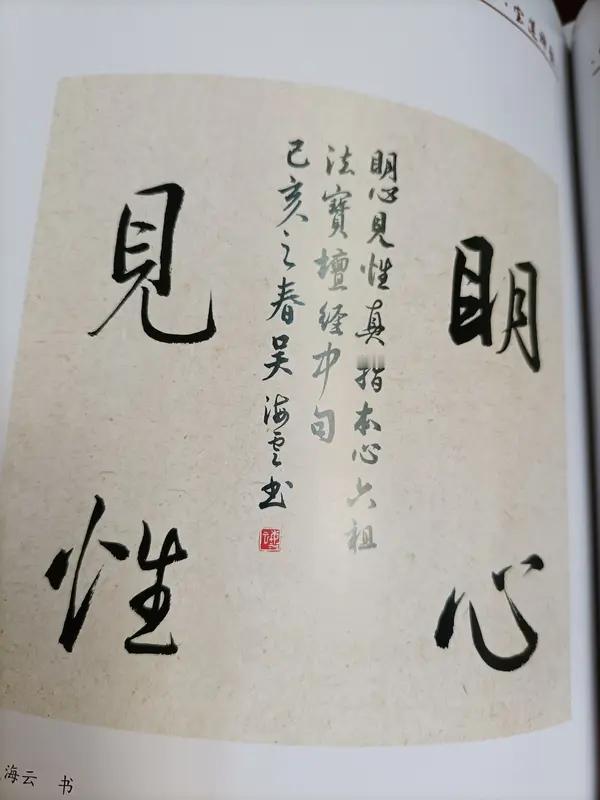 明心
見性
明心見性真指本心六祖
法寶壇經中句
己亥之春吴海雲书
海云 书